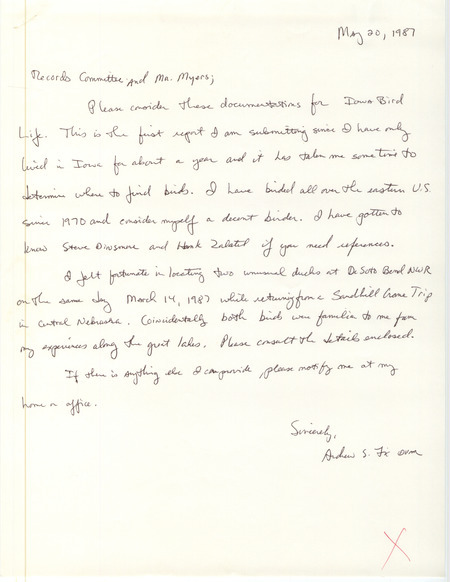 May 20, 1987
Records Committee and Mr. Myers;
Please consider these documentations for Iowa Bird
Life. This is the first report I am submitting since I have only
lived in Iowa for about a year and it has taken me some time to
determine where to find birds. I have birded all over the eastern U.S.
since 1970 and consider myself a decent birder. I have gotten to
know Steve Dinsmore and Hank Zaletel if you need references.
I felt fortunate in locating two unusual ducks at DeSoto Bend NWR
on the same day March 14, 1987 while returning from a Sandhill Crane Trip
in central Nebraska. Coincidentally both birds were familiar to me from
my experiences along the great lakes. Please consult the details enclosed.
If there is anything else I can provide, please notify me at my
home or office.
Sincerely,
Andrew S. Fix DVM
X